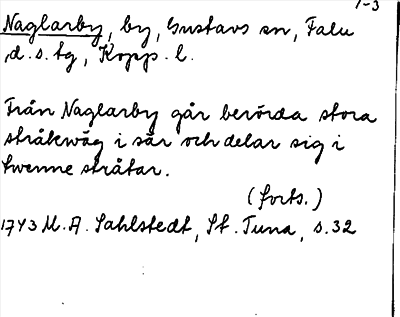 1-3
Naglarby, by, Gustavs sn, Falu
d.s. tg, Kopp. l.
Från Naglarby går berörda stora
stråkwäg i sär och delar sig i
twenne stråtar.
(forts.)
1743 M. A. Sahlstedt, St. Tuna, s. 32